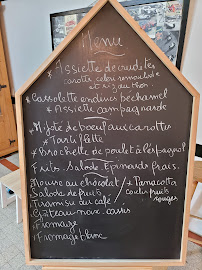 Menu
* Assiette de crudités
carotte celeri remoulade
et riz au thon
* Cassolette endives bechamel
* Assiette campagnarde
* Mijoté de boeuf aux carottes
* Tartiflette
* Brochette de poulet à l'espagnol
Frites Salade Epinards frais.
Mousse au chocolat
* Panacotta
Salade de fruits
coulis fruits
rouges
Tiramisu au café
Gâteau noix cassis
* Fromage blanc